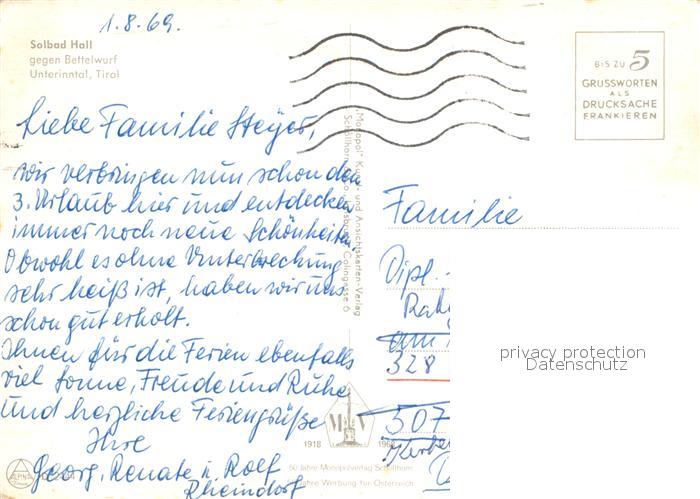 1.8.69.
Solbad Hall
gegen Bettelwurf
Unterinntal, Tirol
BIS ZU 5
GRUSSWORTEN
ALS
DRUCKSACHE
FRANKIEREN
Liebe Familie Steyer,
wir verbringen nun schon den
3. Urlaub hier und entdecken
immer noch neue Schönheiten.
Obwohl es ohne Unterbrechung
sehr heiß ist, haben wir uns
schon gut erholt.
Ihnen für die Ferien ebenfalls
viel Sonne, Freude und Ruhe
und herzliche Feriengrüße
Ihre
Georg, Renate u. Rolf
Rheindorf
"Monopol" Kunst- und Ansichtskarten-Verlag
Familie
Dipl.-
328
507
privacy protection
Datenschutz
1918
50 Jahre Monopolverlag Schöllhorn
Jahre Werbung für Österreich